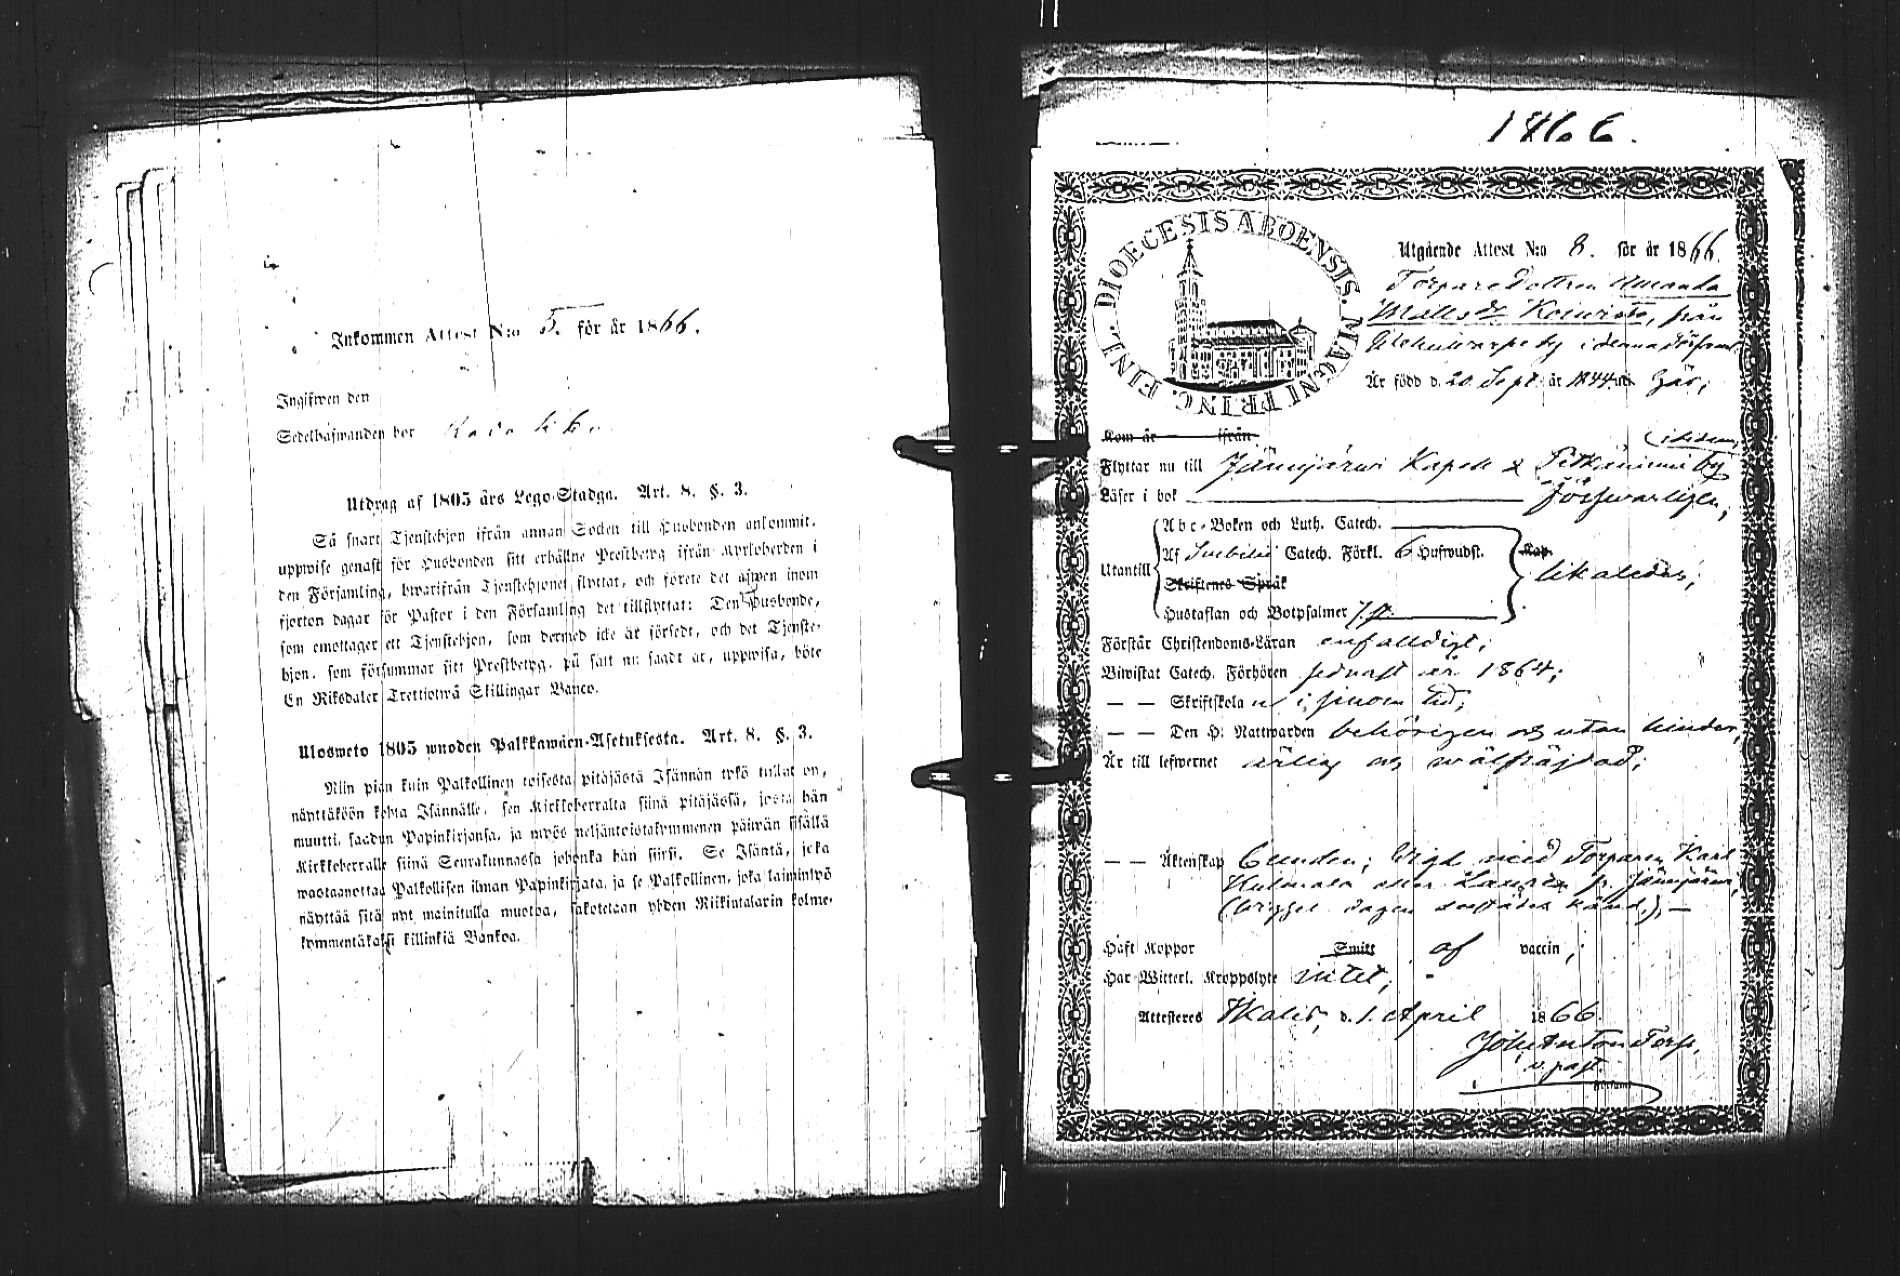 Inkommen Attest N:o 5. för år 1866.
Ingifwen den
Sedelhafwanden bor
Utdrag af 1805 års Lego-Stadga. Art. 8. §. 3.
Så snart Tjenstehjon ifrån annan Socken till Husbonden ankommit,
uppwise genast för Husbonden sitt erhållne Prestbetyg ifrån Kyrkoherden i
den Församling, hwarifrån Tjenstehjonet flyttat, och förete det äfwen inom
fjorton dagar för Pastor i den Församling det tillflyttat: Den Husbonde,
som emottager ett Tjenstehjon, som dermed icke är försedt, och det Tjenste-
hjon, som försummar sitt Prestbetyg, på sätt nu sagdt är, uppwisa, böte
En Riksdaler Trettiotwå Skillingar Banco.
Ulosweto 1805 wuoden Palkkawäen-Asetuksesta. Art. 8. §. 3.
Niin pian kuin Palkollinen toisesta pitäjästä Isännän tykö tullut on,
näyttäköön kohta Isännälle, sen Kirkkoherralta siinä pitäjässä, josta hän
muutti, saadun Papinkirjansa, ja myös neljäntoistakymmenen päiwän sisällä
Kirkkoherralle siinä Seurakunnassa johonka hän siirsi. Se Isäntä, joka
wastaanottaa Palkollisen ilman Papinkirjata, ja se Palkollinen, joka laimintyö
näyttää sitä nyt mainitulla muotoa, sakotetaan yhden Riikintalarin kolme-
kymmentäkaksi killinkiä Bankoa.
1866.
DIOECESIS ABOENSIS. MAGNI PRINC. FINL.
Utgående Attest N:o 8. för år 1866.
Torparedottren Amanda
Mattsdr Koiwisto, från
by i denna församl.
Är född d. 20 Sept. år 1844 här;
Kom år ifrån
(ibidem)
Flyttar nu till Jämijärwi Kapell & Pitkäniemi by
Läser i bok försvarligen;
Utantill
Abc-Boken och Luth. Catech.
Af Svebilii Catech. Förkl. 6 Hufwudst. Kap.
likaledes;
Skriftenes Språk
Hustaflan och Botpsalmer 7 st.
Förstår Christendoms-Läran enfalldigt;
Biwistat Catech. Förhören sednast år 1864;
— — Skriftskola i sinom tid;
— — Den H. Nattwarden behörigen och utan hinder,
Är till lefwernet ärlig och wälfräjdad;
— — Äktenskap bunden; Wigd med Torparen Karl
fr. Jämijärwi,
Haft Koppor Smitt af vaccin;
Har Witterl. Kroppslyte intet;
Attesteres Ikalis, d. 1. April 1866.
Joh. Anton Forss.
v. past.